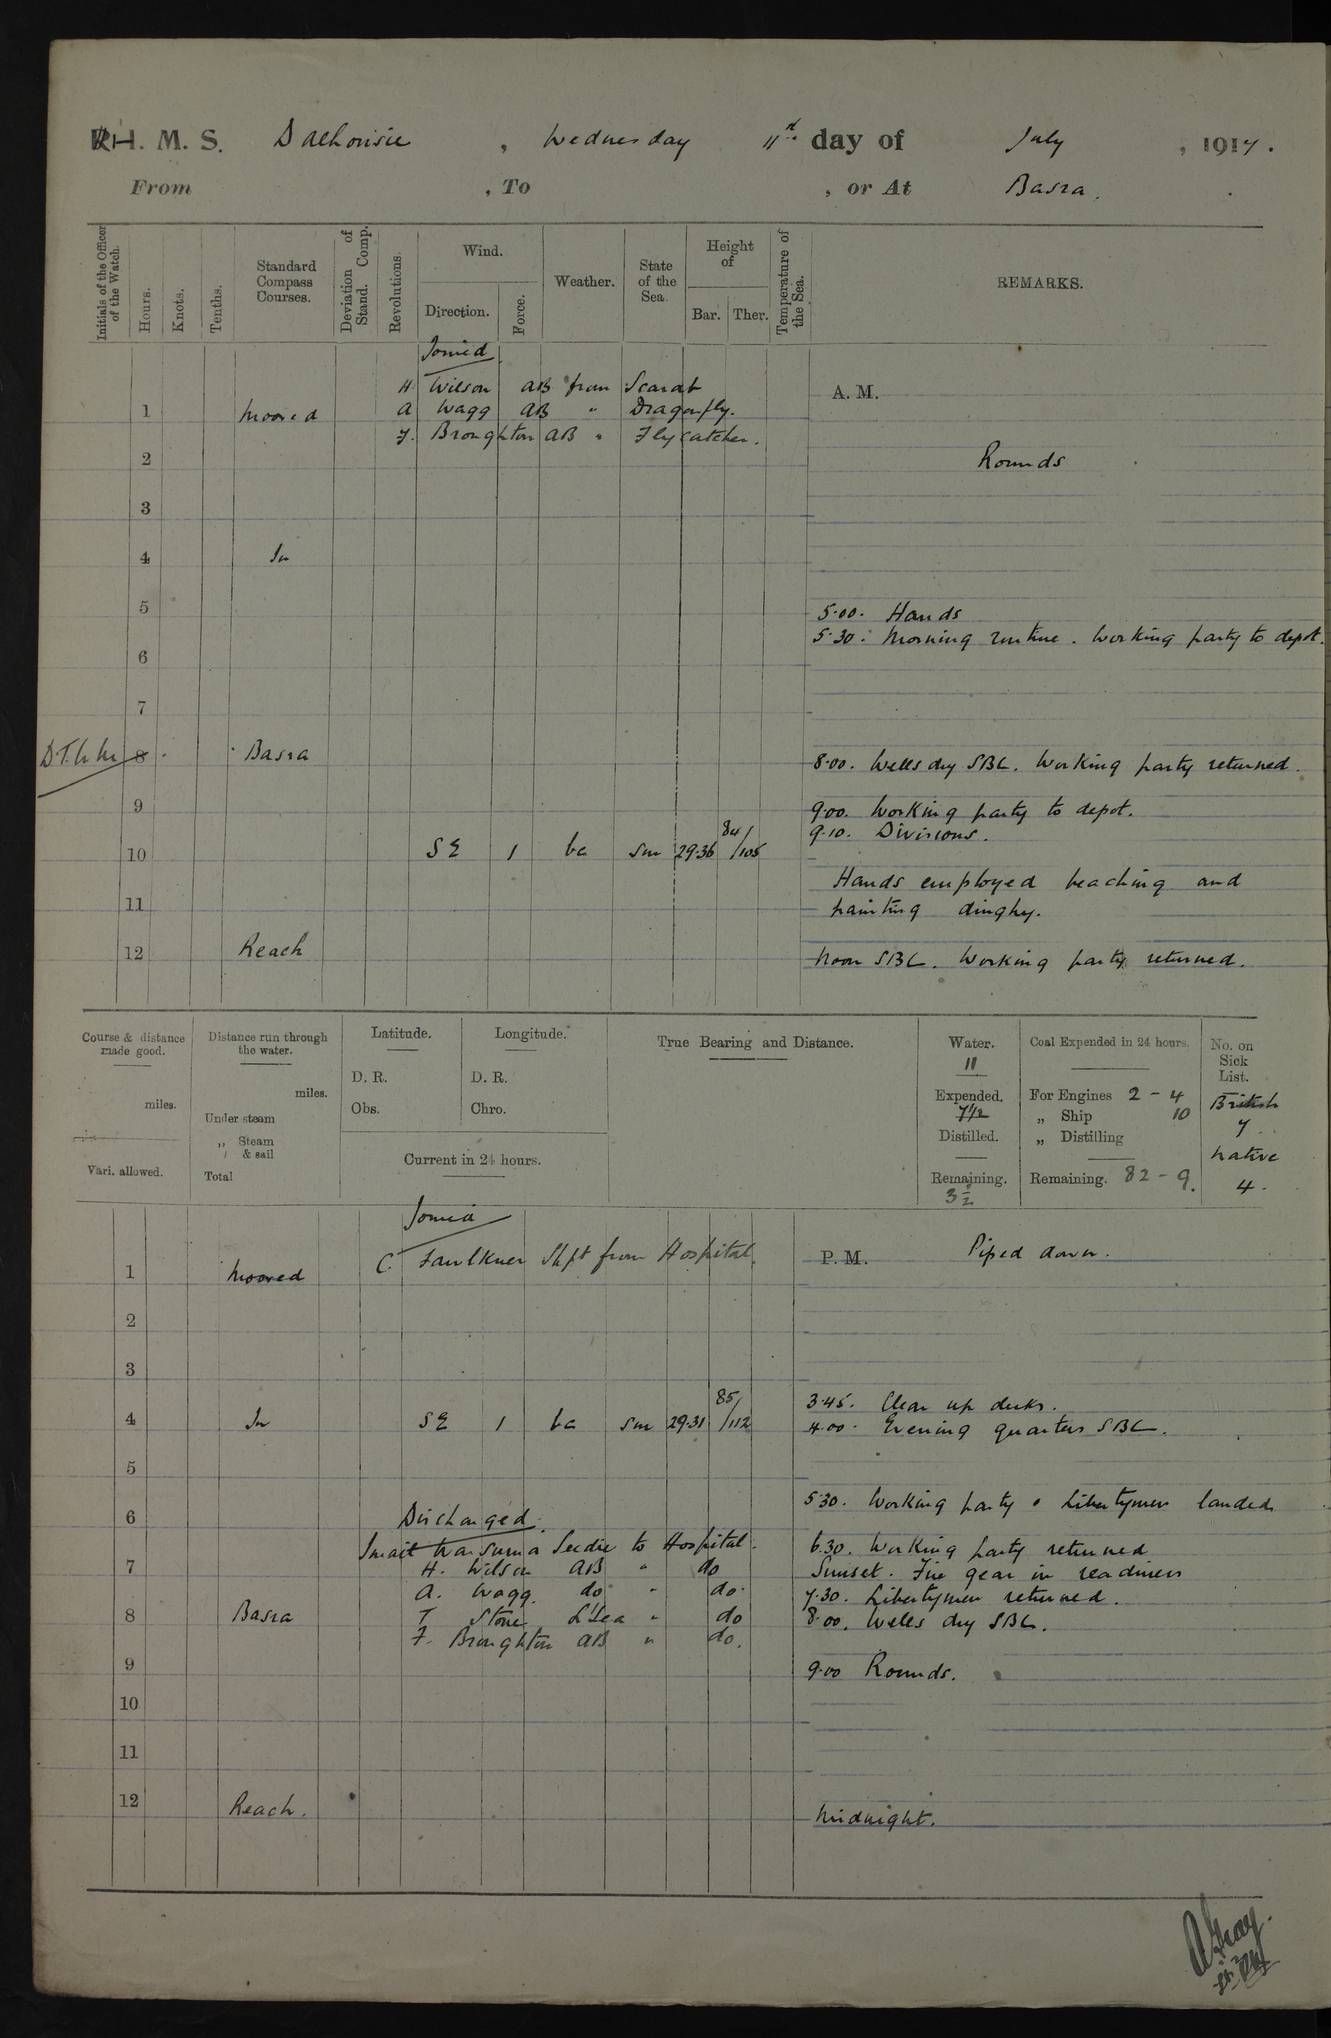 H. M. S. Dalhousie, Wednesday 11th day of July, 1917.
From , To , or At Basra.
Initials of the Officer of the Watch.
Hours.
Knots.
Tenths.
Standard Compass Courses.
Deviation of Stand. Comp.
Revolutions.
Wind.
Direction.
Force.
Weather.
State of the Sea.
Height of
Bar. Ther.
Temperature of the Sea.
REMARKS.
Joined
H Wilson AB from Scarab
A. M.
1 Moored A Wagg AB " Dragonfly.
F. Broughton AB " Flycatcher.
2 Rounds
3
4 In
5 5.00. Hands
5.30. Morning routine. Working party to depot.
6
7
8 Basra 8.00. Wells dry SBC. Working party returned.
9 9.00. Working party to depot.
9.10. Divisions.
10 SE 1 bc sm 29.36 84/105
Hands employed beaching and
11 painting dinghy.
12 Reach Noon SBC. Working party returned.
Course & distance made good.
miles.
Vari. allowed.
Distance run through the water.
miles.
Under steam
„ Steam & sail
Total
Latitude.
D. R.
Obs.
Longitude.
D. R.
Chro.
Current in 24 hours.
True Bearing and Distance.
Water.
11
Expended.
7 1/2
Distilled.
Remaining.
3 1/2
Coal Expended in 24 hours.
For Engines 2 - 4
„ Ship 10
„ Distilling
Remaining. 82 - 9.
No. on Sick List.
British
7.
Native
4.
Joined
C. Faulkner Shpt from Hospital.
P. M. Piped down.
1 Moored
2
3
3.45. Clear up decks.
4 In SE 1 bc sm 29.31 85/112 4.00. Evening quarters SBC.
5
5.30. Working party & Libertymen landed
6 Discharged.
Seedie to Hospital. 6.30. Working party returned
7 H. Wilson AB " do Sunset. Fire gear in readiness
A. Wagg. do " do. 7.30. Libertymen returned.
8 Basra T Stone L'Sea " do 8.00. Wells dry SBC.
F. Broughton AB " do.
9 9.00 Rounds.
10
11
12 Reach. Midnight.